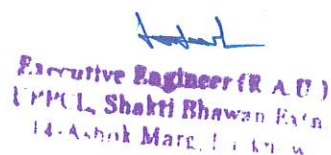 Executive Engineer (R.A.U.)
UPPCL, Shakti Bhawan Extn
14-Ashok Marg, L